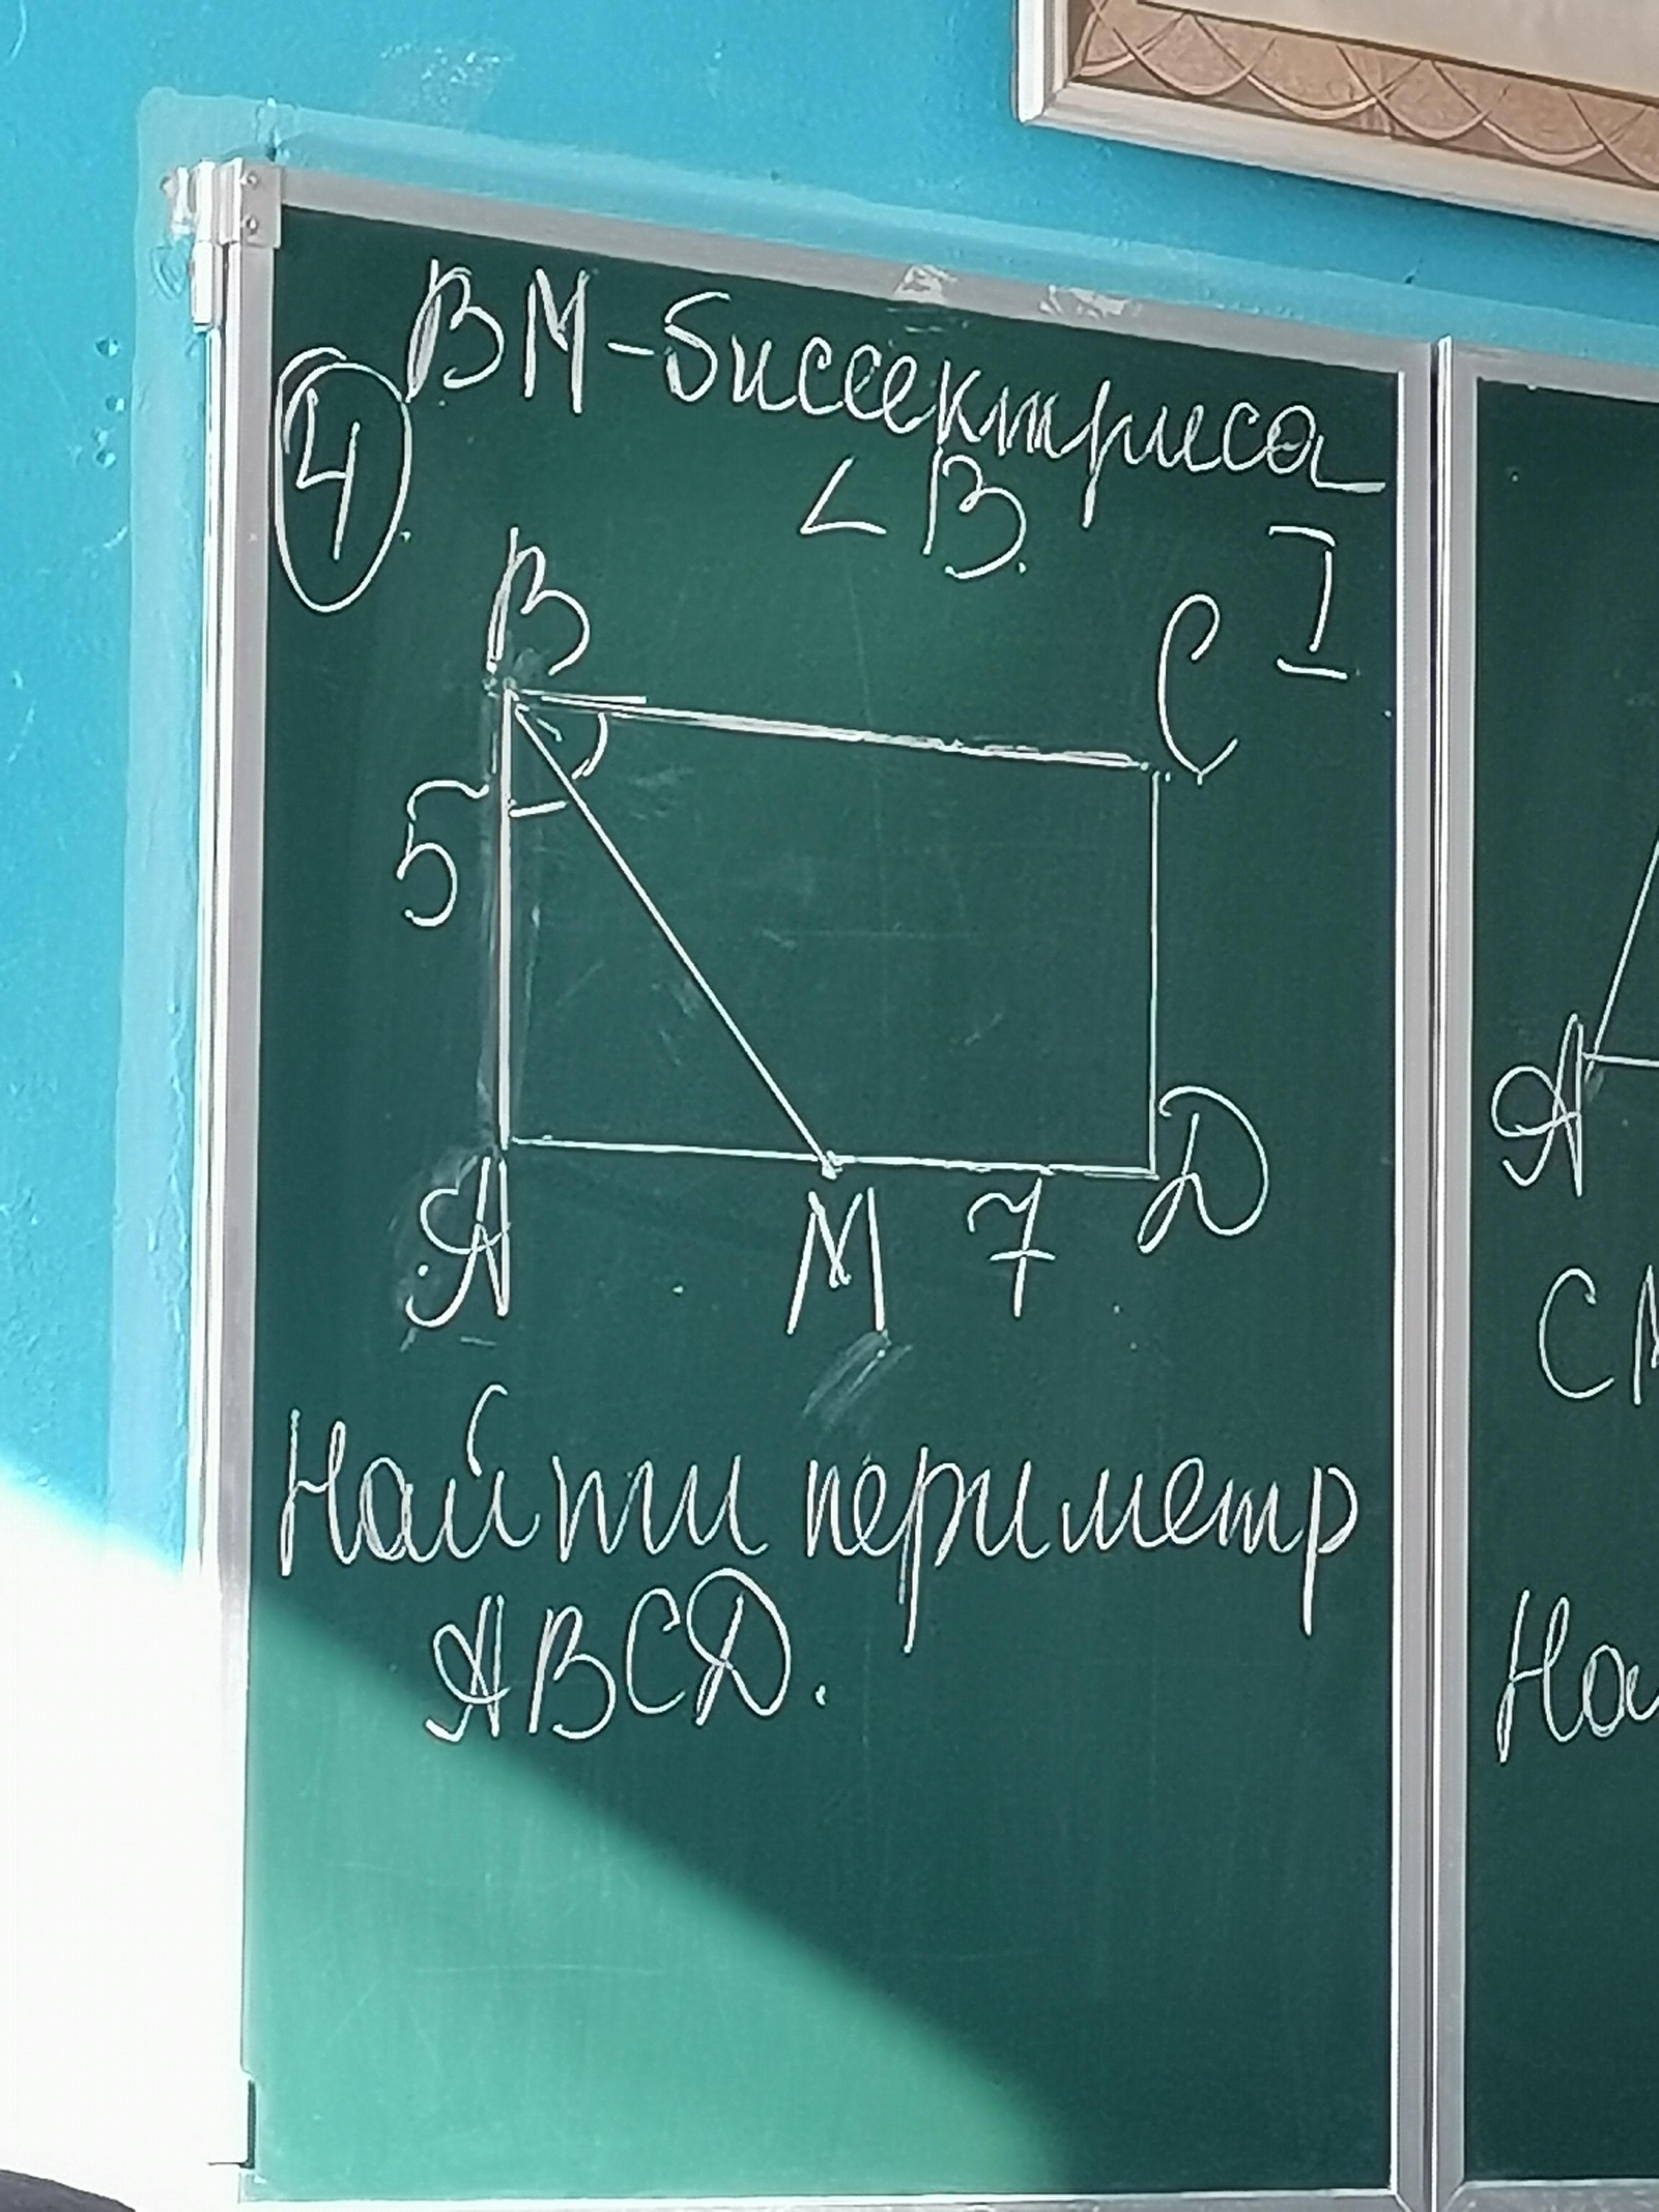 BM-биссектриса
④
∠B.
I
B
C
5
A
M
7
D
Найти периметр
ABCD.
A